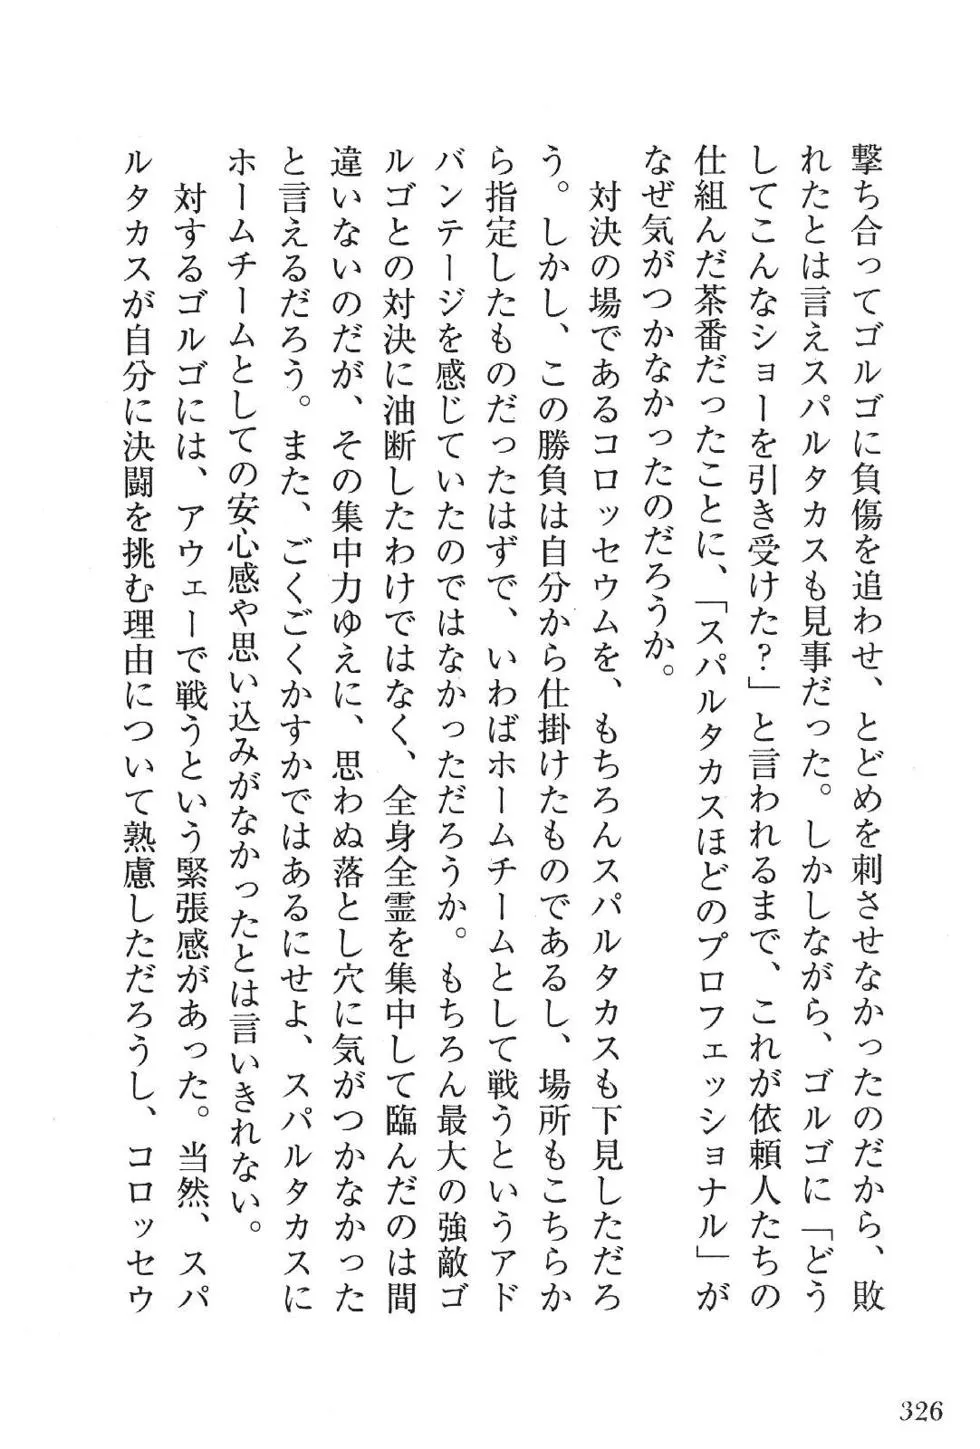 撃ち合ってゴルゴに負傷を追わせ、とどめを刺させなかったのだから、敗
れたとは言えスパルタカスも見事だった。しかしながら、ゴルゴに「どう
してこんなショーを引き受けた?」と言われるまで、これが依頼人たちの
仕組んだ茶番だったことに、「スパルタカスほどのプロフェッショナル」が
なぜ気がつかなかったのだろうか。
対決の場であるコロッセウムを、もちろんスパルタカスも下見しただろ
う。しかし、この勝負は自分から仕掛けたものであるし、場所もこちらか
ら指定したものだったはずで、いわばホームチームとして戦うというアド
バンテージを感じていたのではなかっただろうか。もちろん最大の強敵ゴ
ルゴとの対決に油断したわけではなく、全身全霊を集中して臨んだのは間
違いないのだが、その集中力ゆえに、思わぬ落とし穴に気がつかなかった
と言えるだろう。また、ごくごくかすかではあるにせよ、スパルタカスに
ホームチームとしての安心感や思い込みがなかったとは言いきれない。
対するゴルゴには、アウェーで戦うという緊張感があった。当然、スパ
ルタカスが自分に決闘を挑む理由について熟慮しただろうし、コロッセウ
326